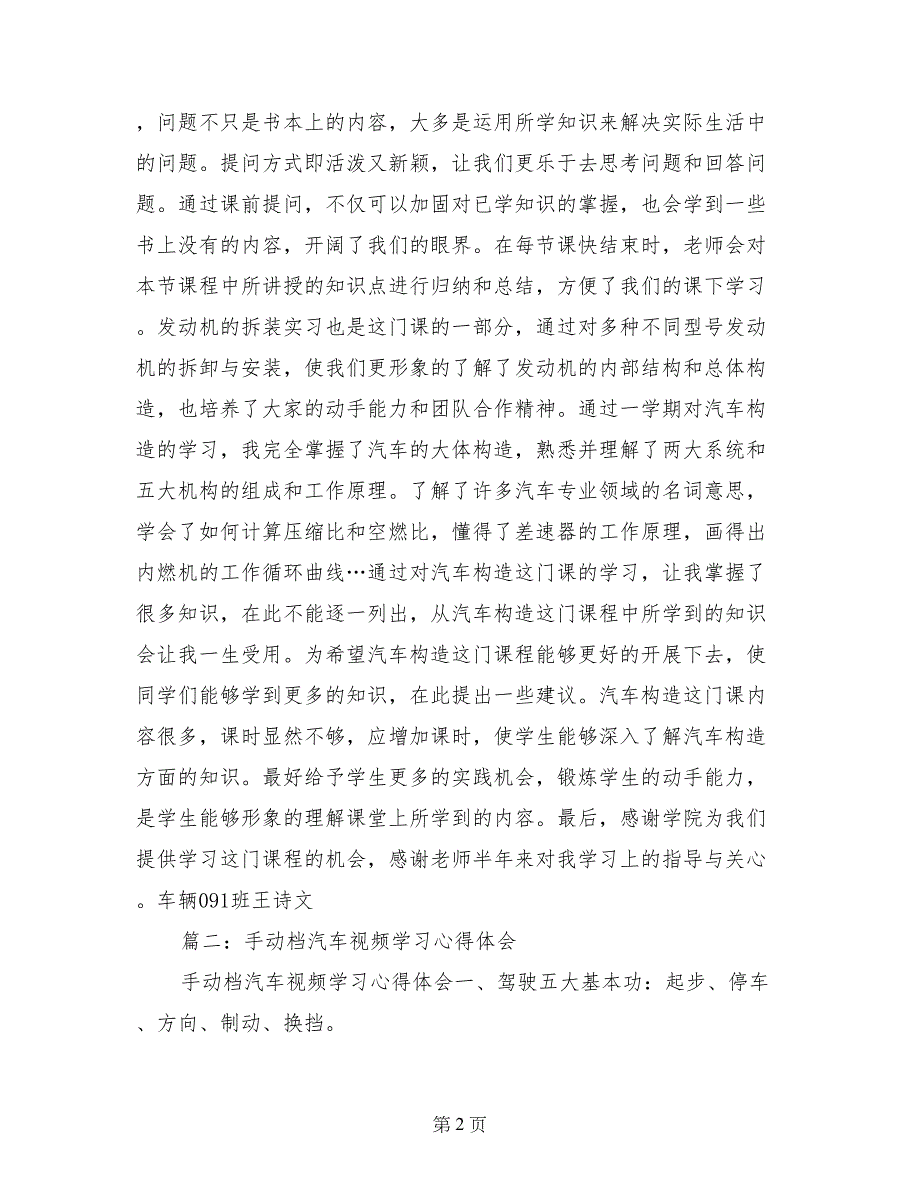 ，问题不只是书本上的内容，大多是运用所学知识来解决实际生活中
的问题。提问方式即活泼又新颖，让我们更乐于去思考问题和回答问
题。通过课前提问，不仅可以加固对已学知识的掌握，也会学到一些
书上没有的内容，开阔了我们的眼界。在每节课快结束时，老师会对
本节课程中所讲授的知识点进行归纳和总结，方便了我们的课下学习
。发动机的拆装实习也是这门课的一部分，通过对多种不同型号发动
机的拆卸与安装，使我们更形象的了解了发动机的内部结构和总体构
造，也培养了大家的动手能力和团队合作精神。通过一学期对汽车构
造的学习，我完全掌握了汽车的大体构造，熟悉并理解了两大系统和
五大机构的组成和工作原理。了解了许多汽车专业领域的名词意思，
学会了如何计算压缩比和空燃比，懂得了差速器的工作原理，画得出
内燃机的工作循环曲线…通过对汽车构造这门课的学习，让我掌握了
很多知识，在此不能逐一列出，从汽车构造这门课程中所学到的知识
会让我一生受用。为希望汽车构造这门课程能够更好的开展下去，使
同学们能够学到更多的知识，在此提出一些建议。汽车构造这门课内
容很多，课时显然不够，应增加课时，使学生能够深入了解汽车构造
方面的知识。最好给予学生更多的实践机会，锻炼学生的动手能力，
是学生能够形象的理解课堂上所学到的内容。最后，感谢学院为我们
提供学习这门课程的机会，感谢老师半年来对我学习上的指导与关心
。车辆091班王诗文
篇二：手动档汽车视频学习心得体会
手动档汽车视频学习心得体会一、驾驶五大基本功：起步、停车
、方向、制动、换挡。
第 2 页